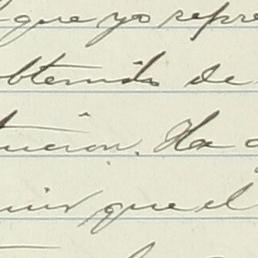 que yo repre
obtenido de
tucion. Ha
que el